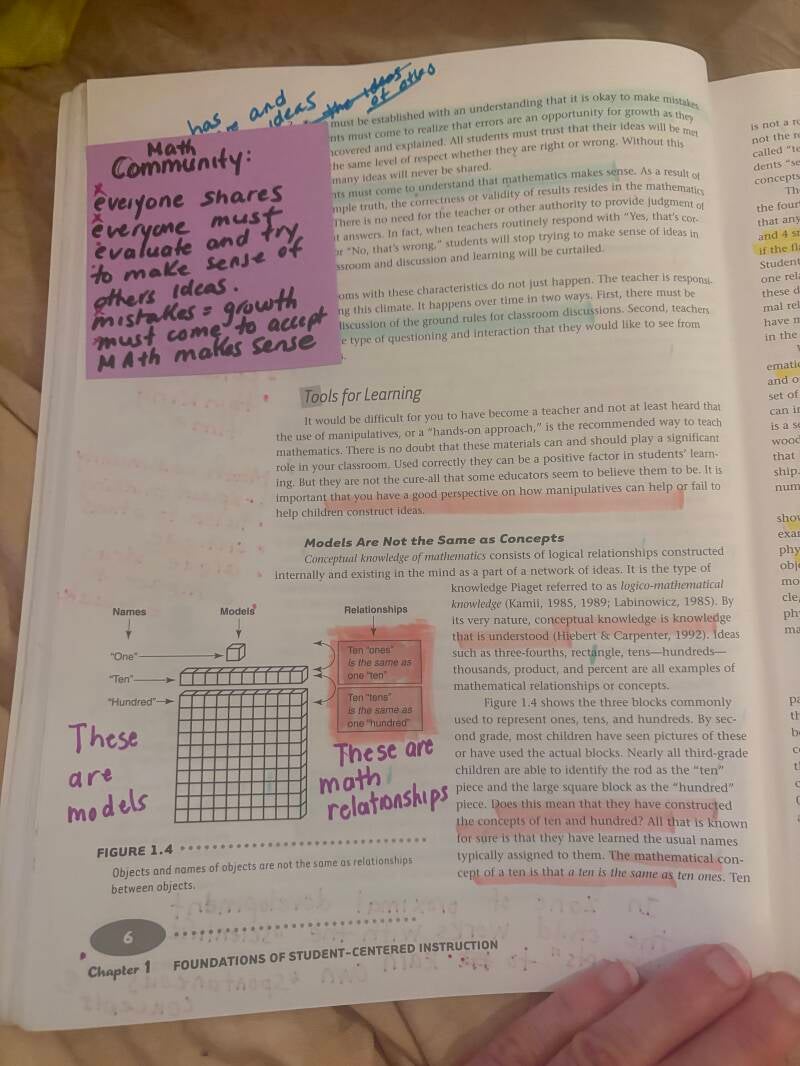 has and
ideas
the ideas
of others
Math
Community:
everyone shares
everyone must
evaluate and try
to make sense of
others ideas.
mistakes = growth
must come to accept
MAth makes sense
must be established with an understanding that it is okay to make mistakes
nts must come to realize that errors are an opportunity for growth as they
covered and explained. All students must trust that their ideas will be met
he same level of respect whether they are right or wrong. Without this
many ideas will never be shared.
nts must come to understand that mathematics makes sense. As a result of
mple truth, the correctness or validity of results resides in the mathematics
There is no need for the teacher or other authority to provide judgment of
t answers. In fact, when teachers routinely respond with "Yes, that's cor-
or "No, that's wrong," students will stop trying to make sense of ideas in
ssroom and discussion and learning will be curtailed.
oms with these characteristics do not just happen. The teacher is responsi-
ng this climate. It happens over time in two ways. First, there must be
discussion of the ground rules for classroom discussions. Second, teachers
e type of questioning and interaction that they would like to see from
Tools for Learning
It would be difficult for you to have become a teacher and not at least heard that
the use of manipulatives, or a "hands-on approach," is the recommended way to teach
mathematics. There is no doubt that these materials can and should play a significant
role in your classroom. Used correctly they can be a positive factor in students' learn-
ing. But they are not the cure-all that some educators seem to believe them to be. It is
important that you have a good perspective on how manipulatives can help or fail to
help children construct ideas.
Models Are Not the Same as Concepts
Conceptual knowledge of mathematics consists of logical relationships constructed
internally and existing in the mind as a part of a network of ideas. It is the type of
knowledge Piaget referred to as logico-mathematical
knowledge (Kamii, 1985, 1989; Labinowicz, 1985). By
its very nature, conceptual knowledge is knowledge
that is understood (Hiebert & Carpenter, 1992). Ideas
such as three-fourths, rectangle, tens—hundreds—
thousands, product, and percent are all examples of
mathematical relationships or concepts.
Figure 1.4 shows the three blocks commonly
used to represent ones, tens, and hundreds. By sec-
ond grade, most children have seen pictures of these
or have used the actual blocks. Nearly all third-grade
children are able to identify the rod as the "ten"
piece and the large square block as the "hundred"
piece. Does this mean that they have constructed
the concepts of ten and hundred? All that is known
for sure is that they have learned the usual names
typically assigned to them. The mathematical con-
cept of a ten is that a ten is the same as ten ones. Ten
Names Models Relationships
"One"
"Ten"
"Hundred"
Ten "ones"
is the same as
one "ten"
Ten "tens"
is the same as
one "hundred"
These
are
models
These are
math
relationships
FIGURE 1.4
Objects and names of objects are not the same as relationships
between objects.
6
Chapter 1 FOUNDATIONS OF STUDENT-CENTERED INSTRUCTION
is not a r
not the r
called "te
dents "se
concepts
Th
the four
that any
and 4 s
if the fl
Student
one rel
these d
mal rel
have n
in the
ematic
and o
set of
can i
is a s
wood
that
ship.
num
show
exar
phy
obj
mo
cle,
ph
ma